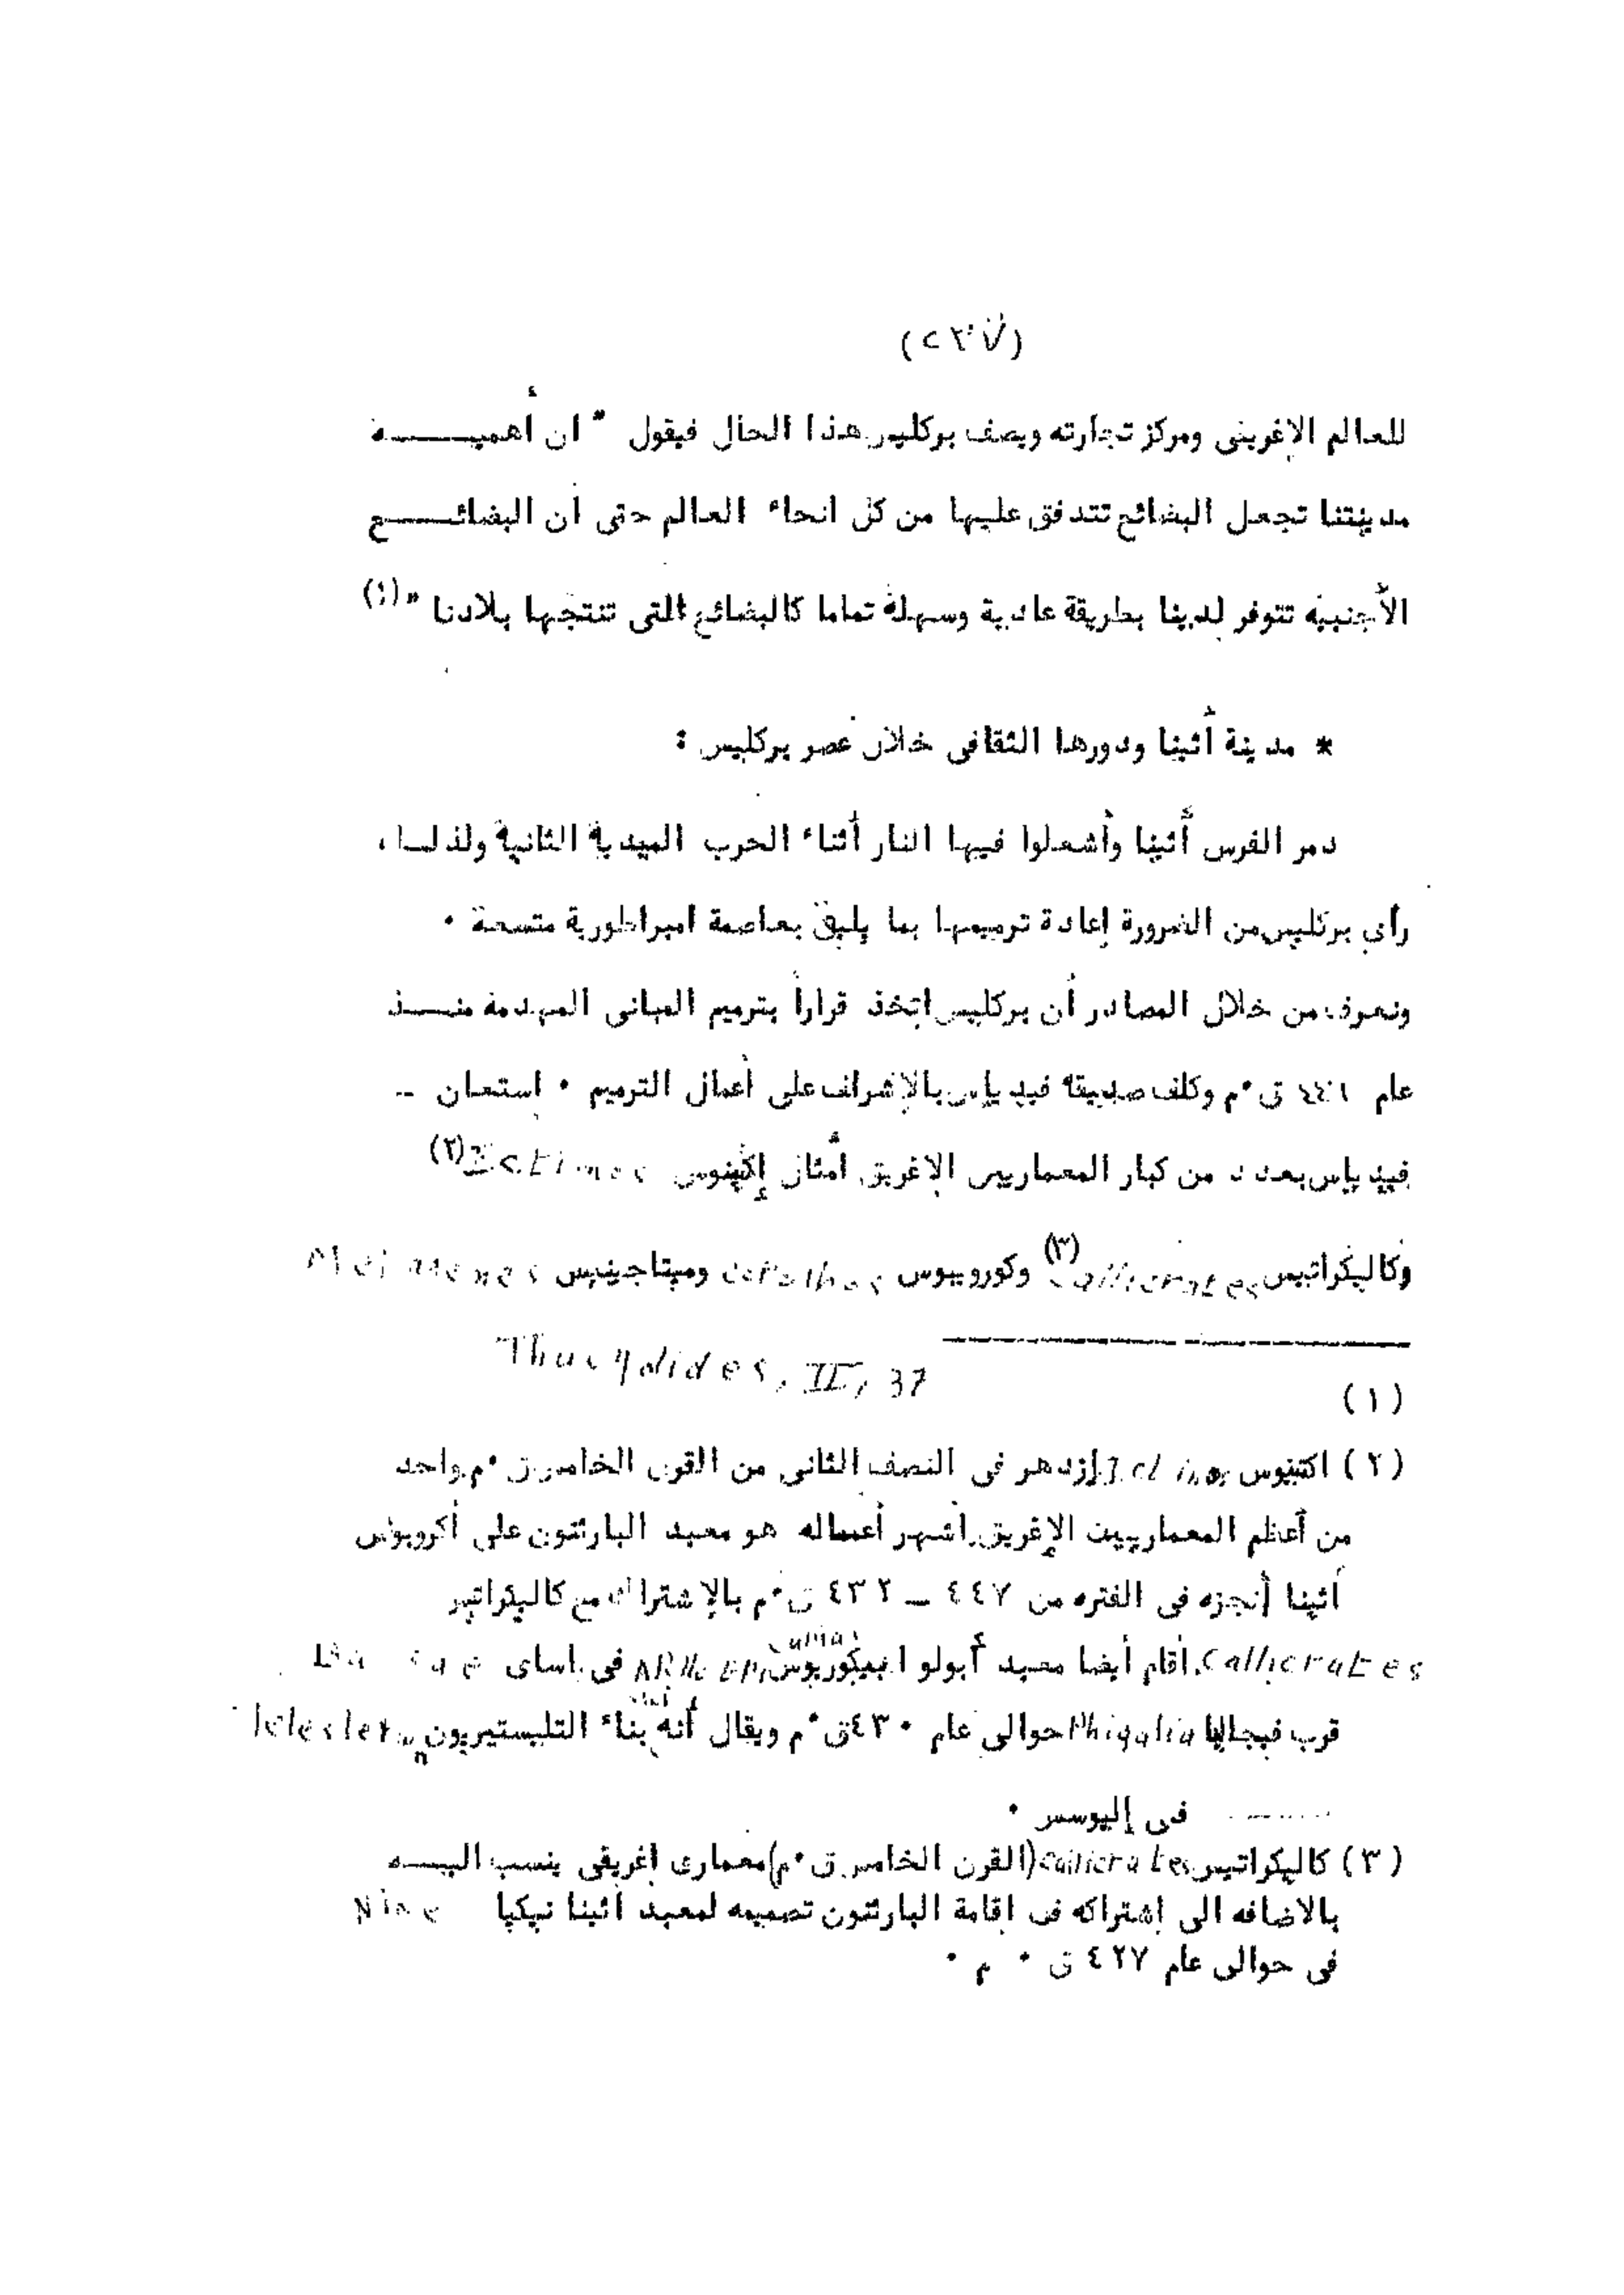 (٢٣٧)
للعالم الإغريقى ومركز تجارته ويصف بركليس هذا الحال فيقول " ان أهميـــة
مدينتنا تجعل البضائع تتدفق عليها من كل انحاء العالم حتى أن البضائـــع
الأجنبيه تتوفر لدينا بطريقة عادية وسهلة تماما كالبضائع التى تنتجها بلادنا " (١)
* مدينة أثينا ودورها الثقافى خلال عصر بركليس :
دمر الفرس أثينا وأشعلوا فيها النار أثناء الحرب الميدية الثانية ولذلـك ،
رأى بركليس من الضرورة إعادة ترميمها بما يليق بعاصمة امبراطورية متسعة ٠
ونعرف من خلال المصادر أن بركليس اتخذ قراراً بترميم المبانى المهدمة منـــذ
عام ق٠م وكلف صديقه فيدياس بالإشراف على أعمال الترميم ٠ استعان ــ
فيدياس بعدد من كبار المعماريين الاغريق أمثال إكتينوس (٢)
وكاليكراتيس Callicrates (٣) وكورويبوس وميتاجينيس
(١) Thucydides, II, 37
(٢) اكتينوس إزدهر فى النصف الثانى من القرن الخامس ق٠م واحد
من أعظم المعماريين الإغريق أشهر أعماله هو معبد البارثنون على أكروبولس
أثينا أنجزه فى الفتره من ٤٤٧ ــ ٤٣٢ ق٠م بالإشتراك مع كاليكراتيس
Callicrates أقام أيضا معبد أبولو ابيكوريوس فى باساى
قرب فيجاليا Phigalia حوالى عام ٤٣٠ق٠م ويقال أنه بناء التليستيريون
فى إليوسس ٠
(٣) كاليكراتيس Callicrates (القرن الخامس ق٠م) معمارى اغريقى ينسب اليـــه
بالاضافه الى إشتراكه فى اقامة البارثنون تصميمه لمعبد أثينا نيكيا
فى حوالى عام ٤٢٧ ق ٠ م ٠